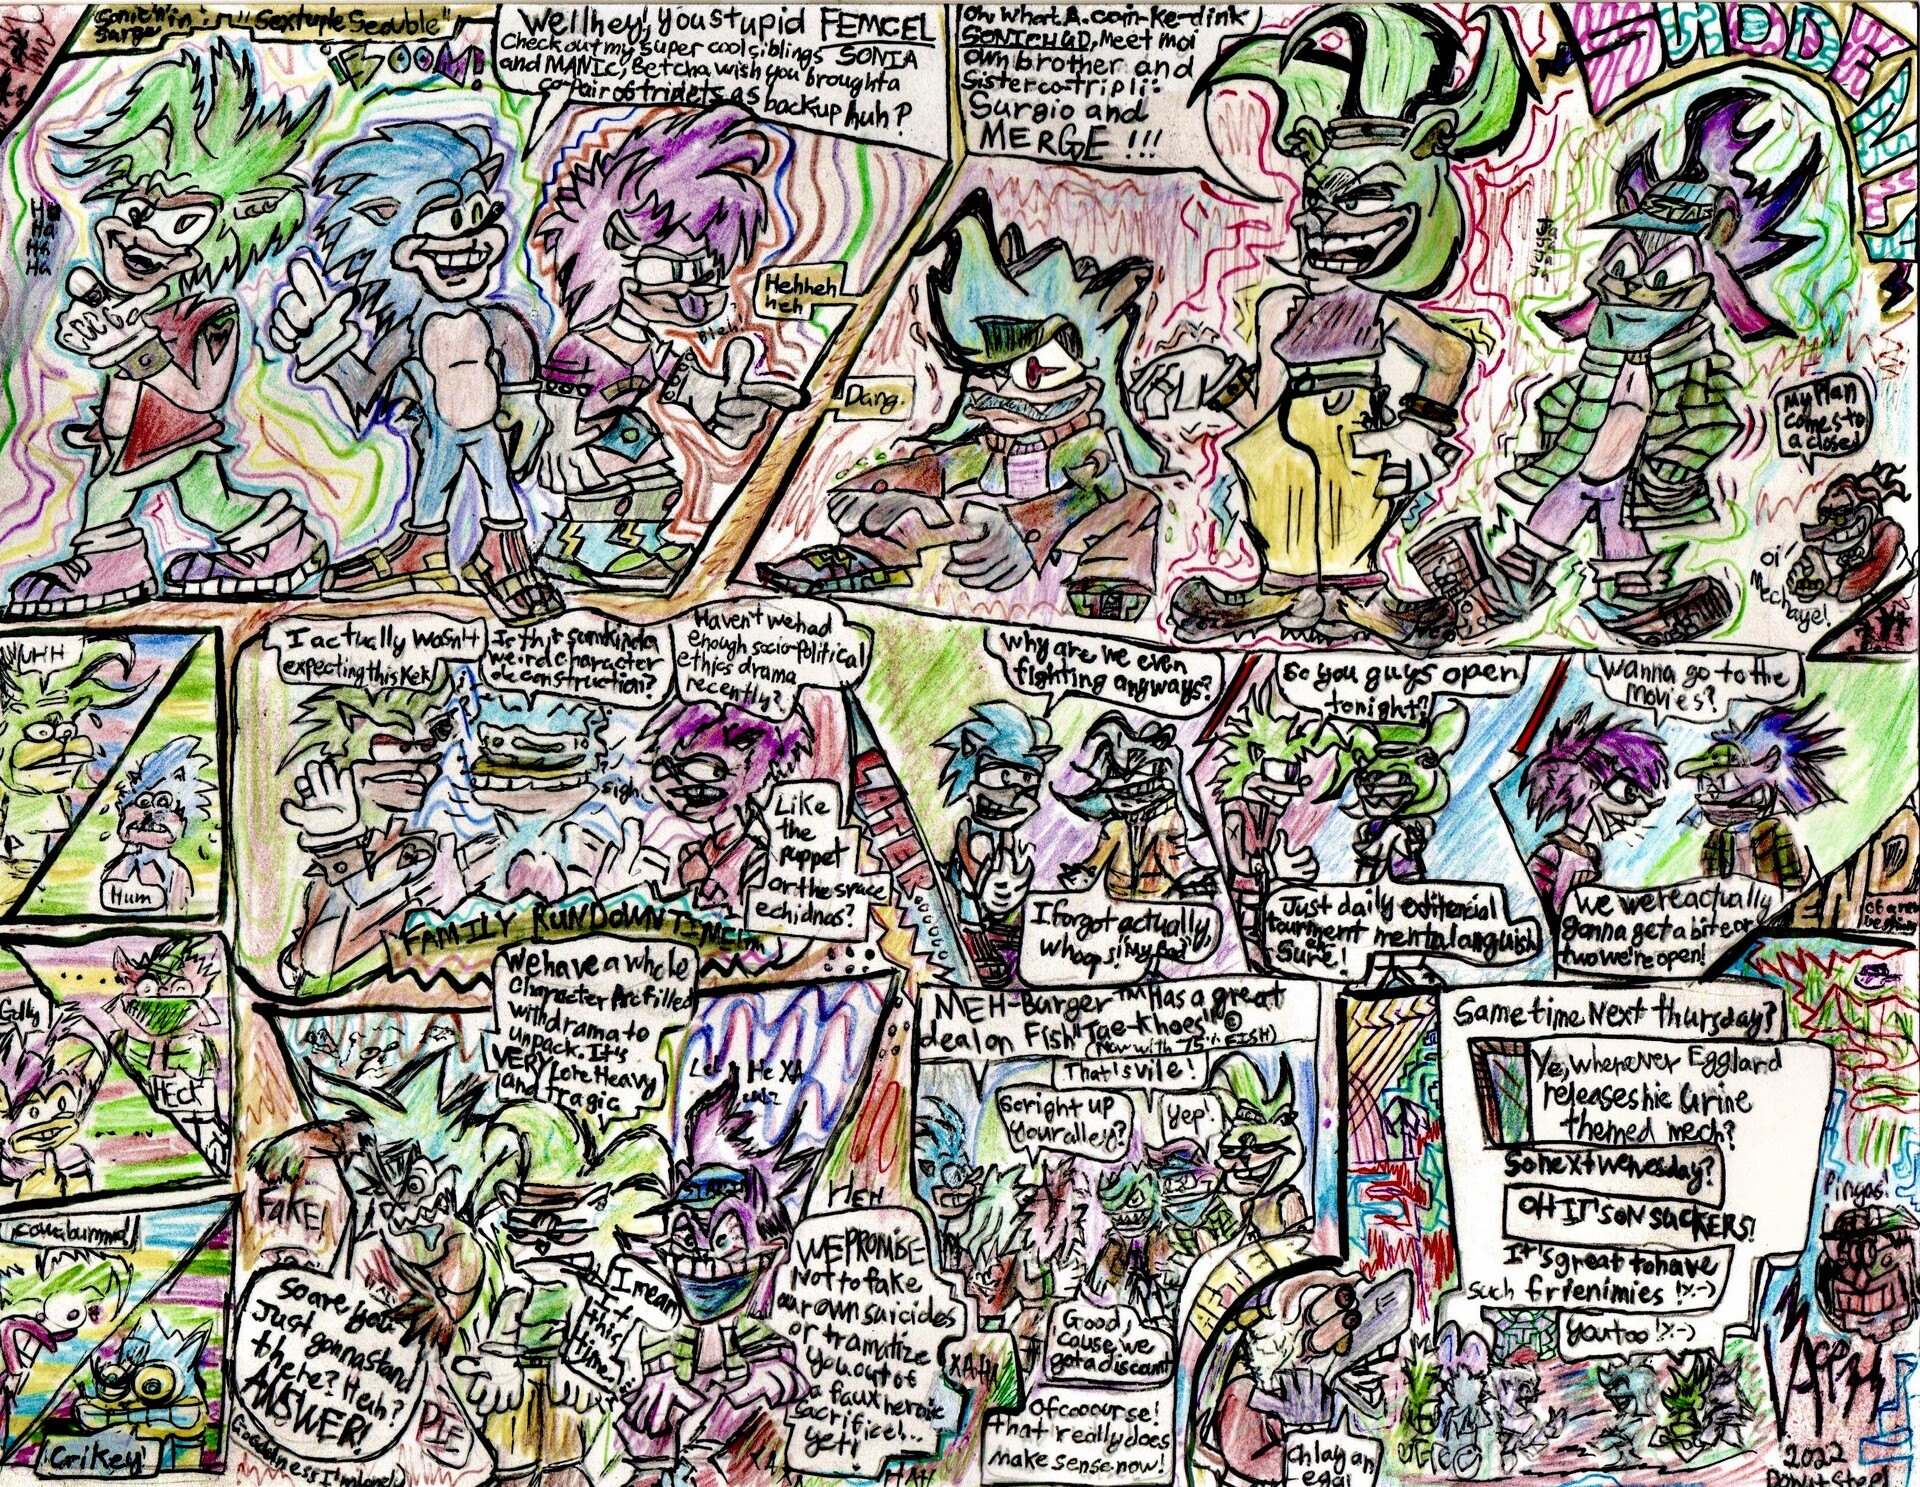 Sonic'n'in:
Surge
"Sextuple Seouble"
¡EZOOM!
Well hey, you stupid FEMCEL
Check out my super cool siblings SONIA
and MANIC, Betcha wish you brought a
co-pair of triplets as backup huh?
Oh what A. coin-ke-dink
SONICHGD, Meet moi
own brother and
sister co-tripli:
Surgio and
MERGE !!!
SUDDENLY
Ha
Ha
Ha
Ha
Bleh!
Hehheh
heh
Dang.
STAR
My Plan
comes to
a closed
oi'
Mechaye!
NUHH
Hum
I actually wasn't
expecting this Kek
Is this somkinda
weird character
deconstruction?
Haven't we had
enough socio-political
ethics drama
recently?
sigh
Like
the
puppet
or the space
echidnas?
FAMILY RUNDOWN TIME
LATER
Why are we even
fighting anyways?
I forgot actually,
whoops! "My Bad"
So you guys open
tonight?
Just daily exitencial
tourment mental anguish
Sure!
Wanna go to the
Movies?
We were actually
gonna get a bite or
two we're open!
Golly
HECK
cowabunma!
Crikey!
We have a whole
Character Arc filled
with drama to
unpack. It's
VERY Lore Heavy
and tragic
FAKE!
So are you
Just gonna stand
there? Huh?
ANSWER!
Goodness I'm lonely
DIE
I mean
this
time...
HEH
WE PROMISE
Not to fake
our own suicides
or tramatize
you out of
a faux heroic
sacrifice!...
yet!
HAH
MEH-Burger™ Has a great
deal on Fish "Tae-Khoes" ©
(Now with 75% FISH)
That's vile!
So right up
your alley?
Yep!
Good,
'cause we
got a discount
Ofcooourse!
that really does
make sense now!
Chlay an
egg!
Same time Next thursday?
Ye, whenever Eggland
releases hie Urine
themed mech?
So next wenesday?
OH IT'S ON SUCKERS!
It's great to have
such frienimies !X-)
you too !X-)
Pingas!
2022
Don't Steel